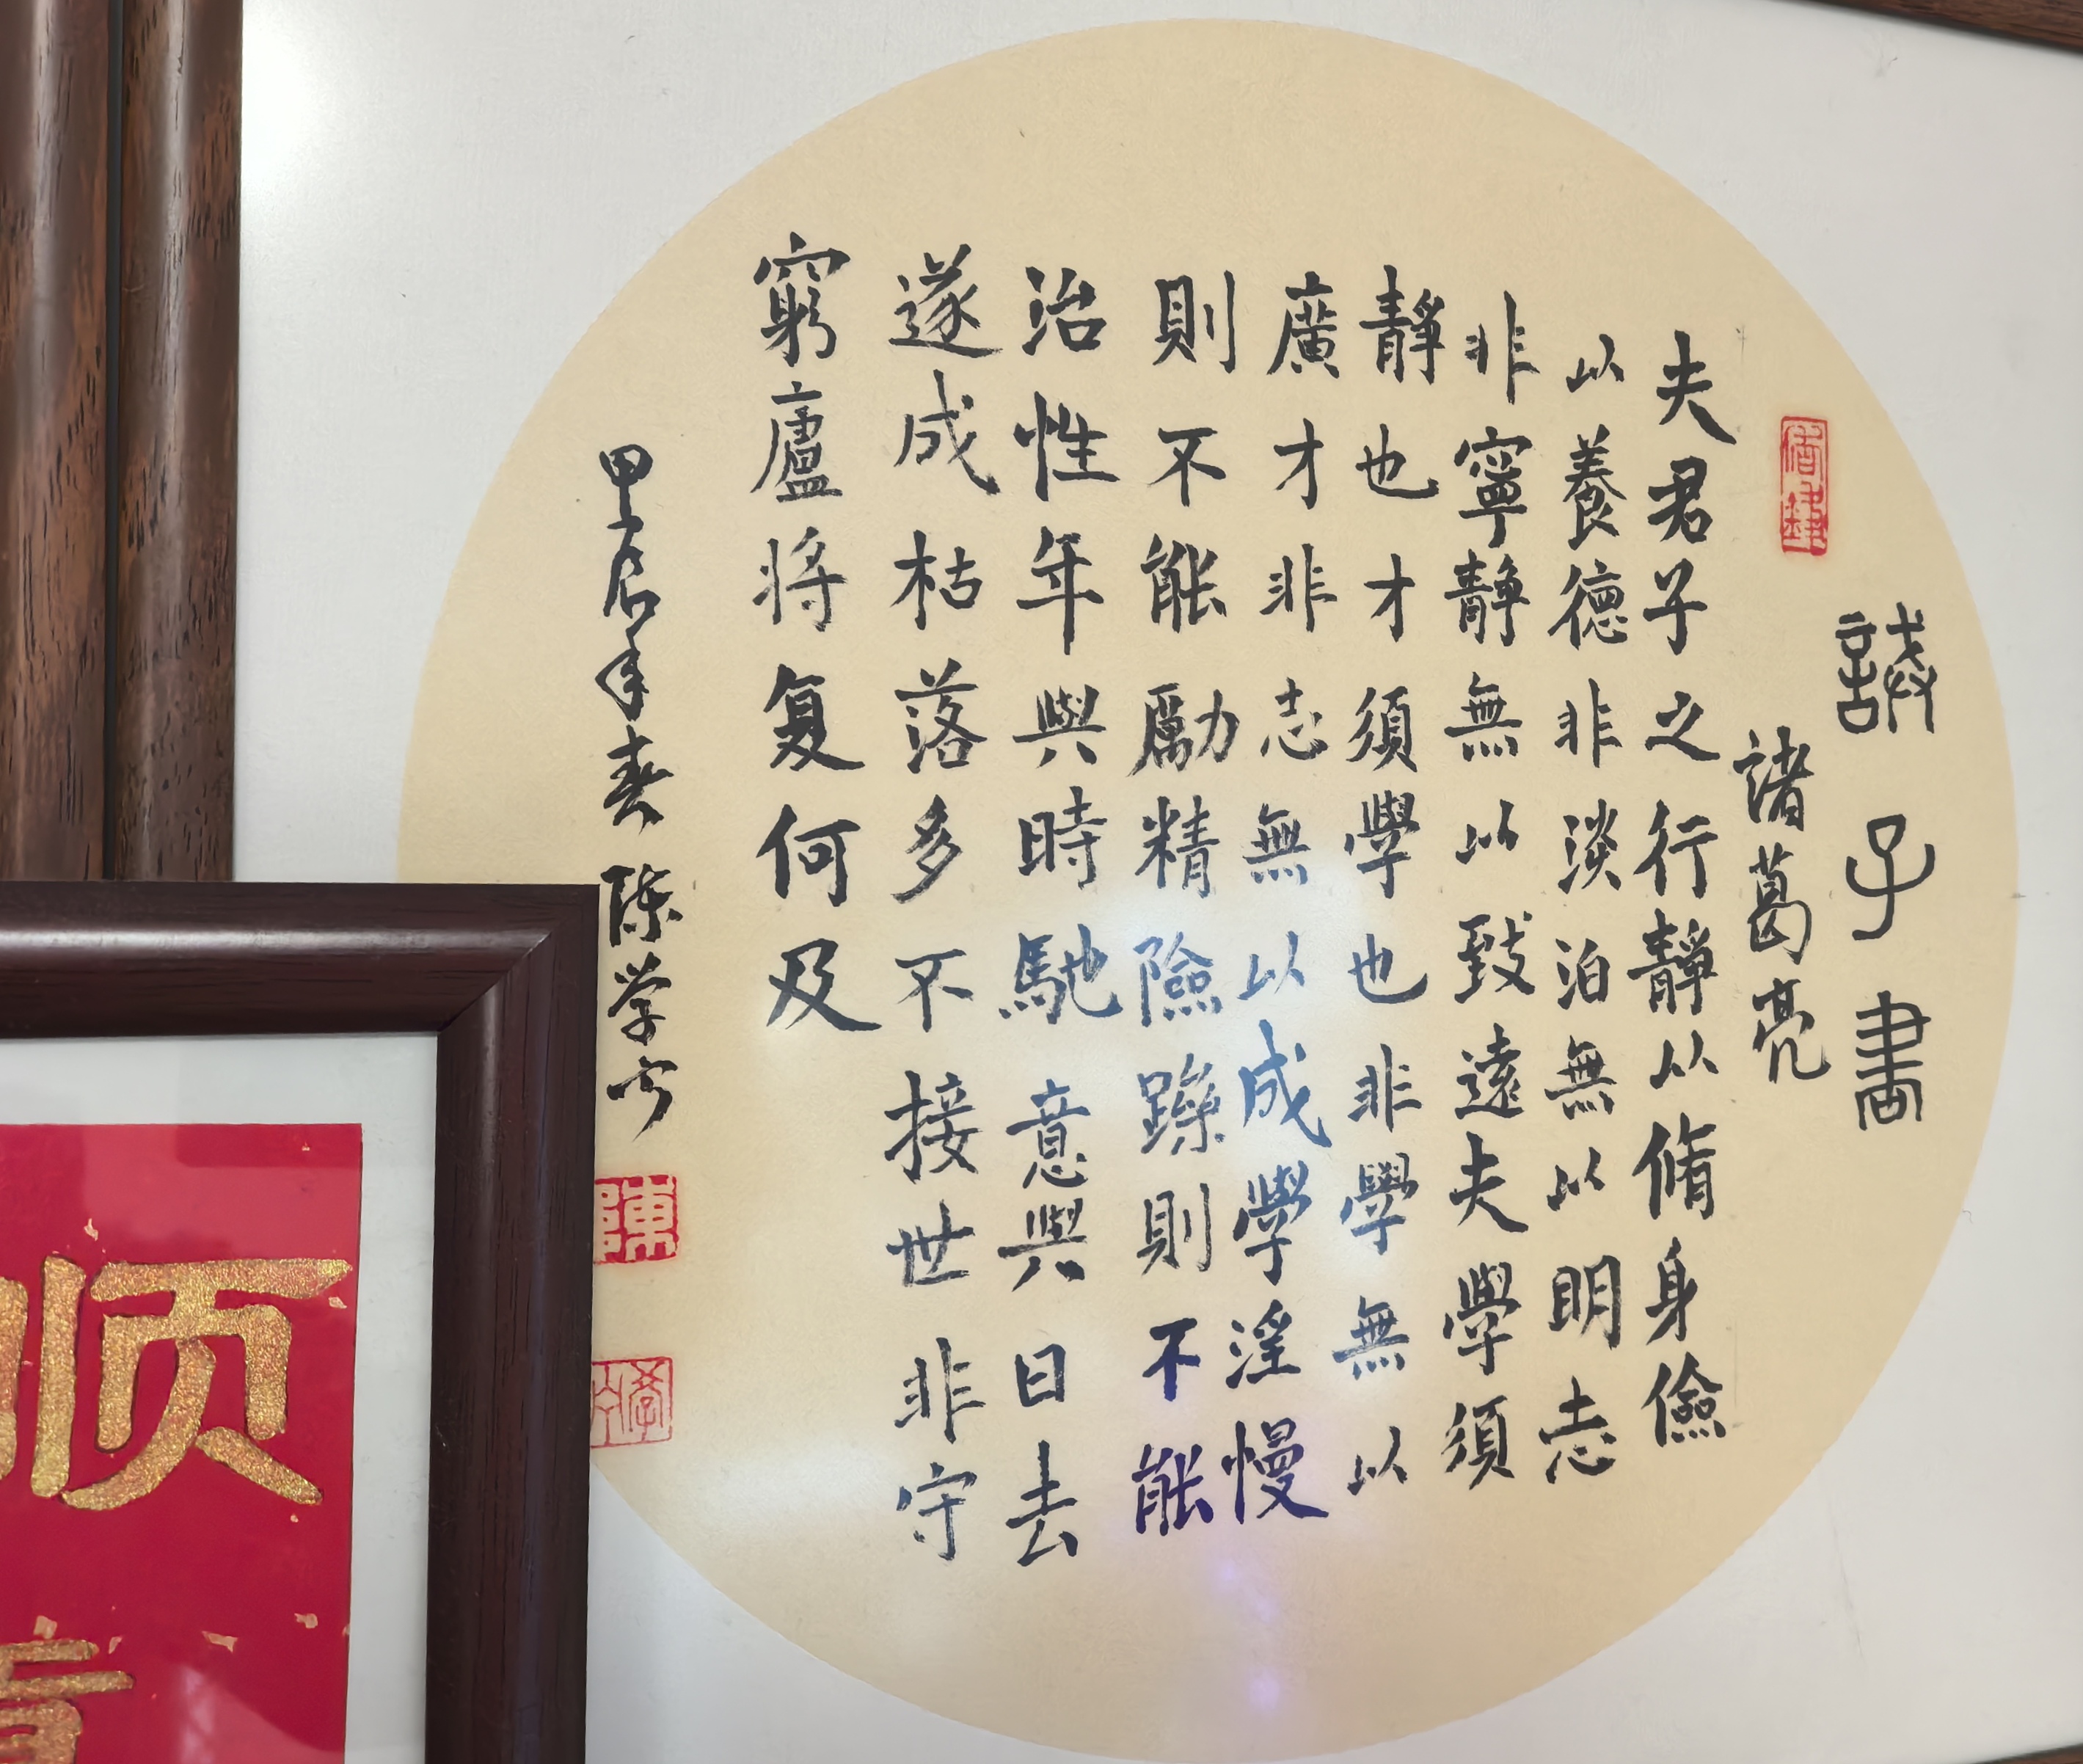 誡子書
諸葛亮
夫君子之行靜以脩身儉
以養德非淡泊無以明志
非寧靜無以致遠夫學須
靜也才須學也非學無以
廣才非志無以成學淫慢
則不能勵精險躁則不能
治性年與時馳意與日去
遂成枯落多不接世非守
窮廬將复何及
甲辰年春陈学
顺